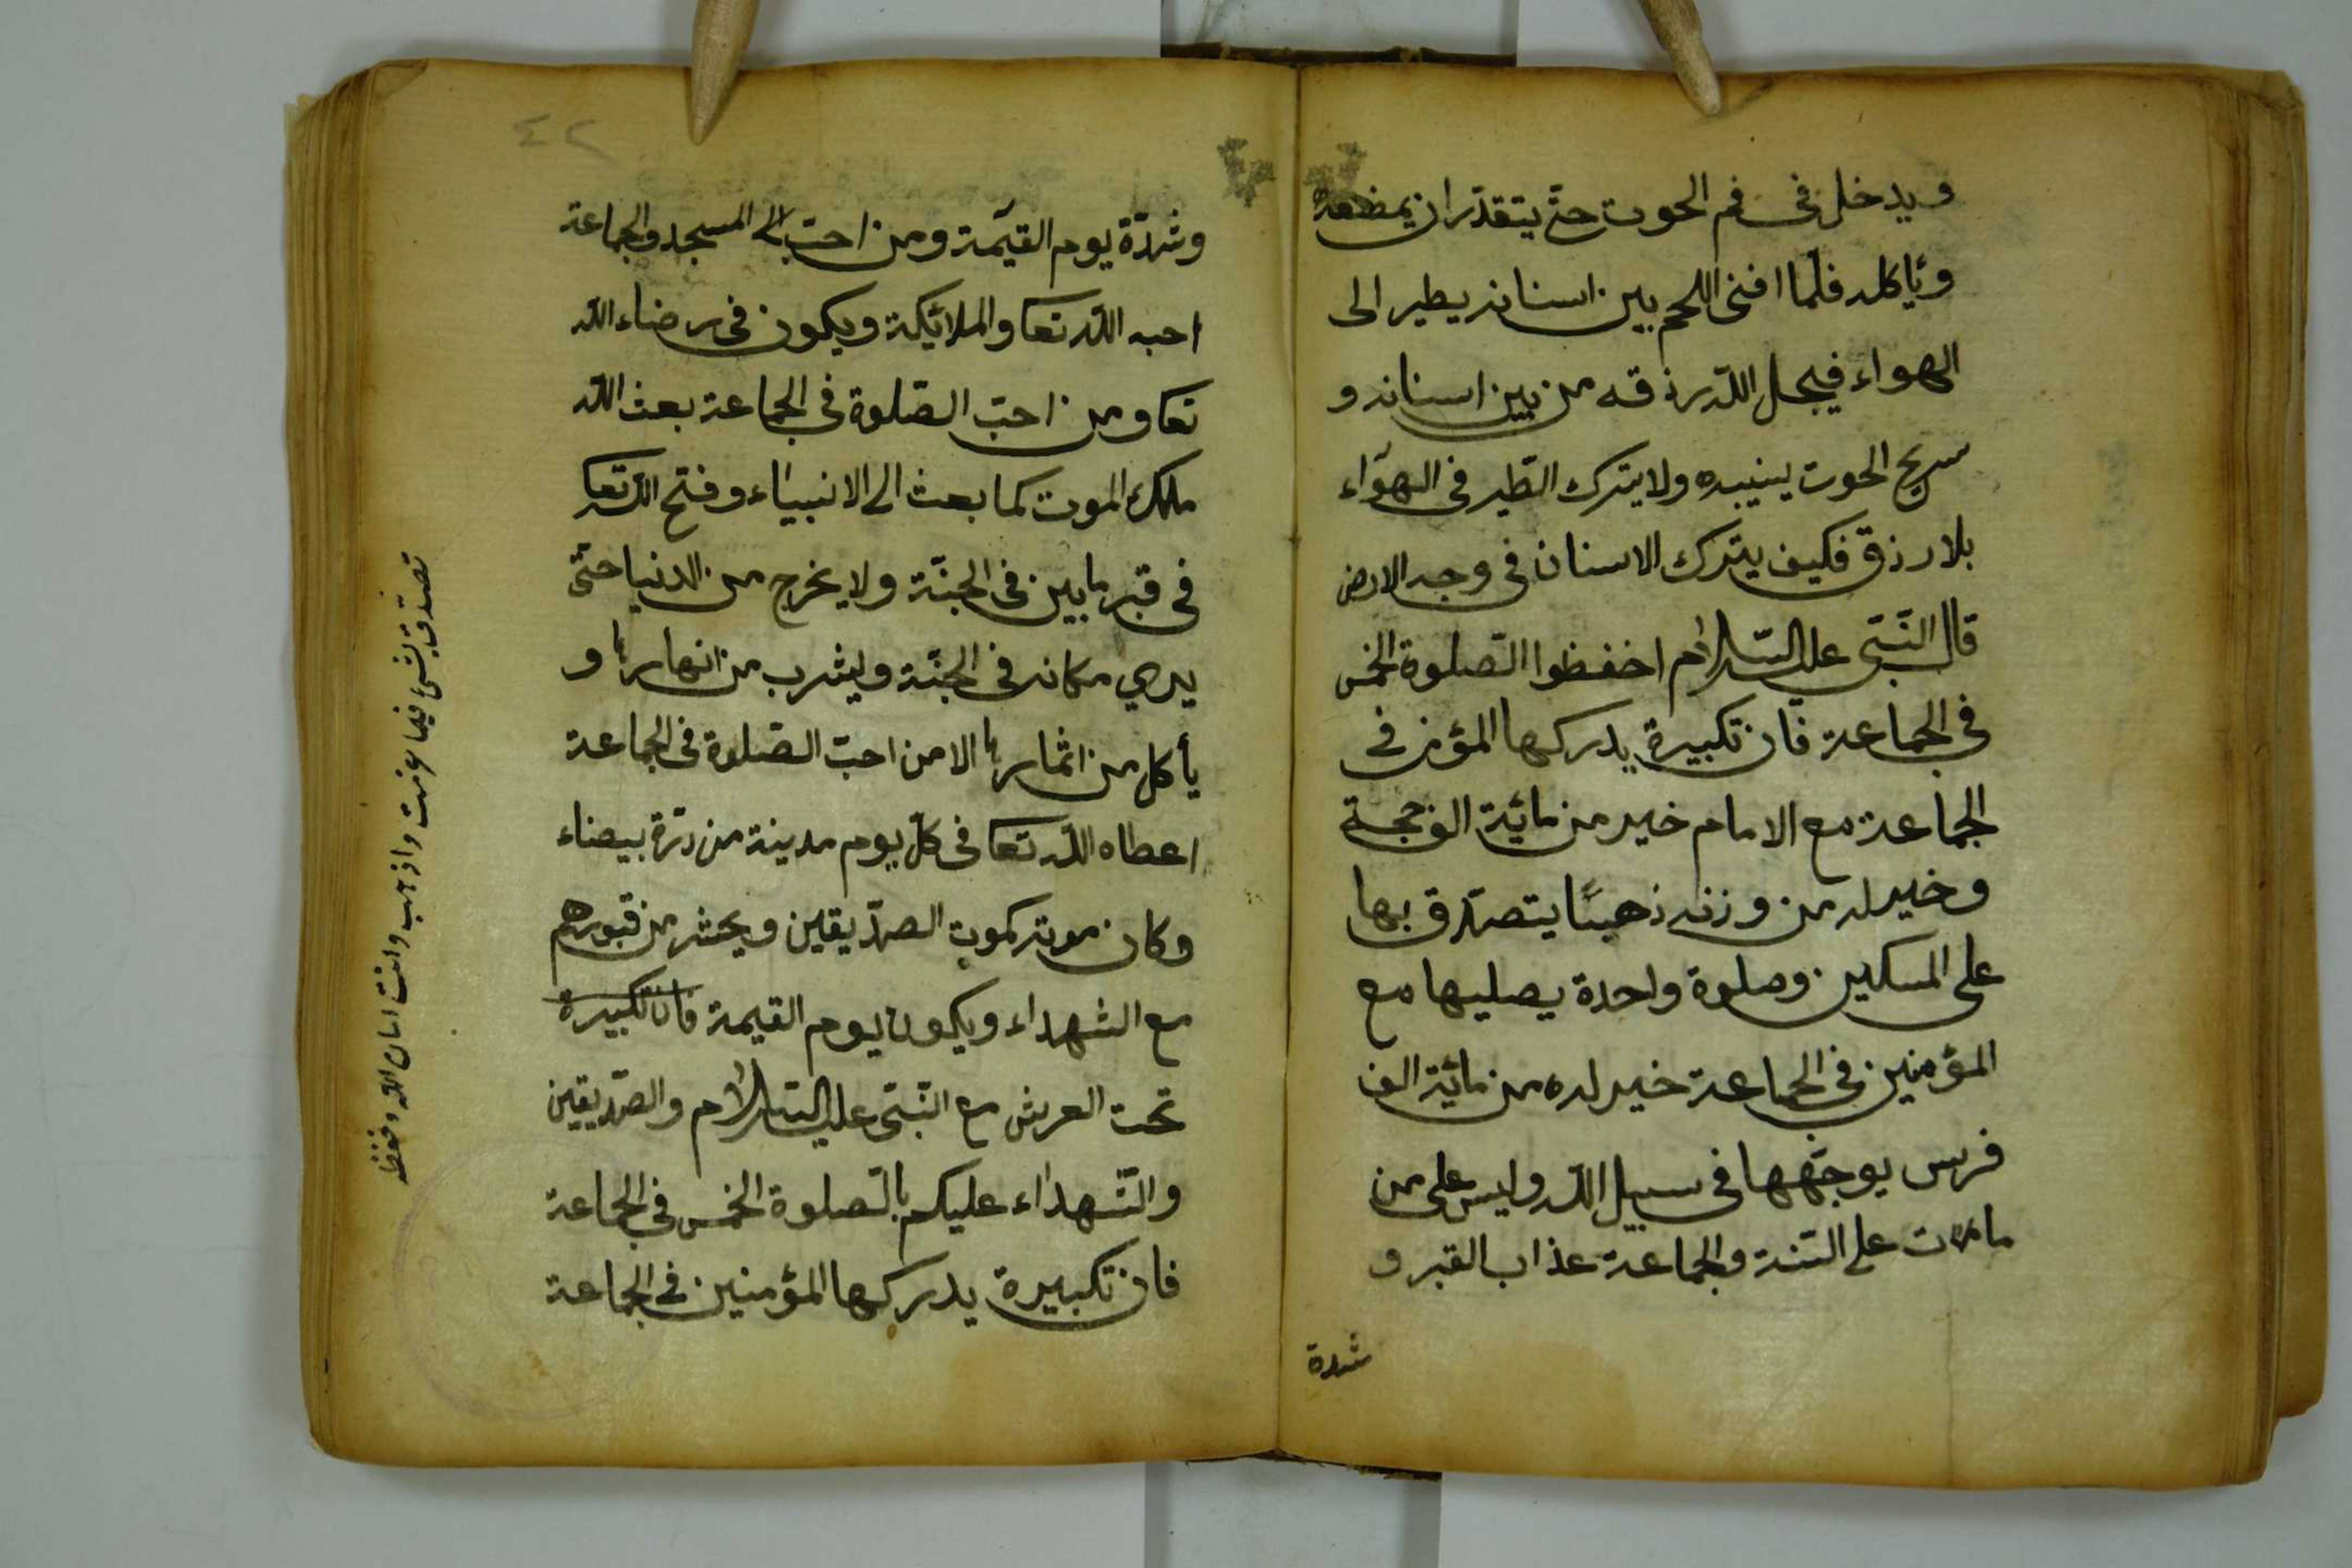 ويدخل فى فم الحوت حتّى يتقدّر ان يمضغه
ويأكله فلمّا افنى اللحم بين اسنانه يطير الى
الهواء فيجعل اللّه رزقه من بين اسنانه و
الحوت ولا يترك الطّير فى الهوآء
بلا رزق فكيف يترك الاسنان فى وجه الارض
قال النّبىّ عليه السّلام احفظوا الصّلوة الخمس
فى الجماعة فان تكبيرة يدركها المؤمن فى
الجماعة مع الامام خير من مائية الف حجة
وخير له من وزنه ذهبًا يتصدّق بها
على المسكين وصلوة واحدة يصليها مع
المؤمنين فى الجماعة خير له من مائية الف
فرس يوجّهها فى سبيل اللّه وليس على من
مات على السّنة والجماعة عذاب القبر و
شدة
٤٢
وشدّة يوم القيٰمة ومن احبّ الى المسجد والجماعة
احبه اللّه تعا والملائيكة ويكون فى رضاء اللّه
تعا ومن احبّ الصّلوة فى الجماعة بعث اللّه
ملك الموت كما بعث الى الانبياء وفتح اللّه تعا
فى قبره بابين فى الجنّة ولا يخرج من الدنيا حتّى
يرى مكانه فى الجنّة ويشرب من انهارها و
يأكل من اثمارها الا من احبّ الصّلوة فى الجماعة
اعطاه اللّه تعا فى كلّ يوم مدينة من درّة بيضاء
وكان موته كموت الصدّيقين ويحشر من قبورهم
مع الشهداء ويكون يوم القيمة فان تكبيرة
تحت العرش مع النّبىّ عليه السّلام والصدّيقين
والشّهداء عليكم بالصّلوة الخمس فى الجماعة
فان تكبيرة يدركها المؤمنين فى الجماعة
تصدق بشئ فيما عزمت واذهب وانت امان اللّه وحفظ